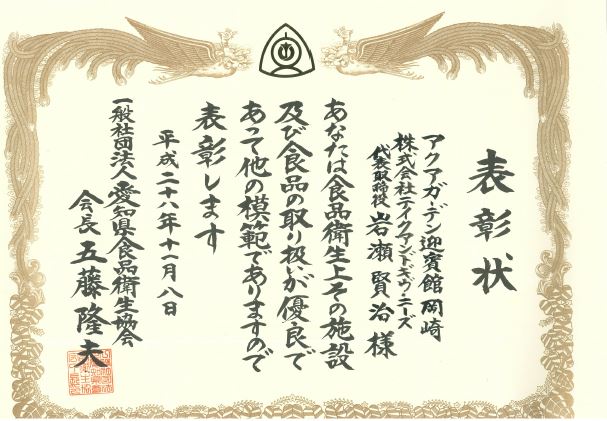 表彰状
アクアガーデン迎賓館岡崎
株式会社テイクアンドギヴ・ニーズ
代表取締役 岩瀬賢治様
あなたは食品衛生上その施設
及び食品の取り扱いが優良で
あって他の模範でありますので
表彰します
平成二十八年十一月八日
一般社団法人愛知県食品衛生協会
会長 五藤隆夫